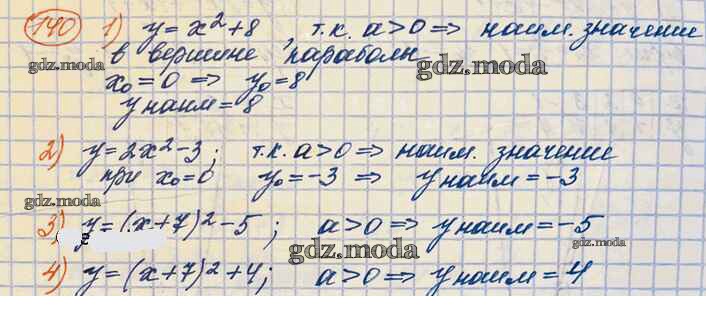 140 1) y = x² + 8, т.к. a > 0 => наим. значение
в вершине параболы
gdz.moda
gdz.moda
x₀ = 0 => y₀ = 8
y наим = 8
2) y = 2x² - 3; т.к. a > 0 => наим. значение
при x₀ = 0 y₀ = -3 => y наим = -3
gdz.moda
3) y = (x + 7)² - 5; a > 0 => y наим = -5
gdz.moda
gdz.moda
4) y = (x + 7)² + 4; a > 0 => y наим = 4